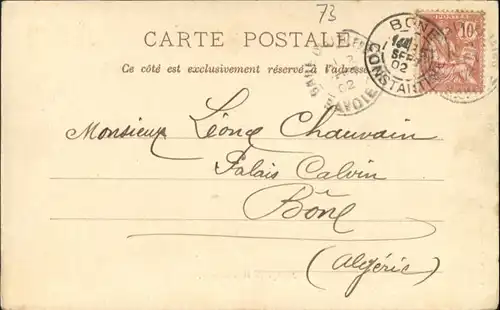 73
BONE
CONSTANTINE
SEPT
02
10
POSTES
CARTE POSTALE
SAVOIE
02
Ce côté est exclusivement réservé à l'adresse
Monsieur Léone Chauvain
Palais Calvin
Bône
(Algérie)